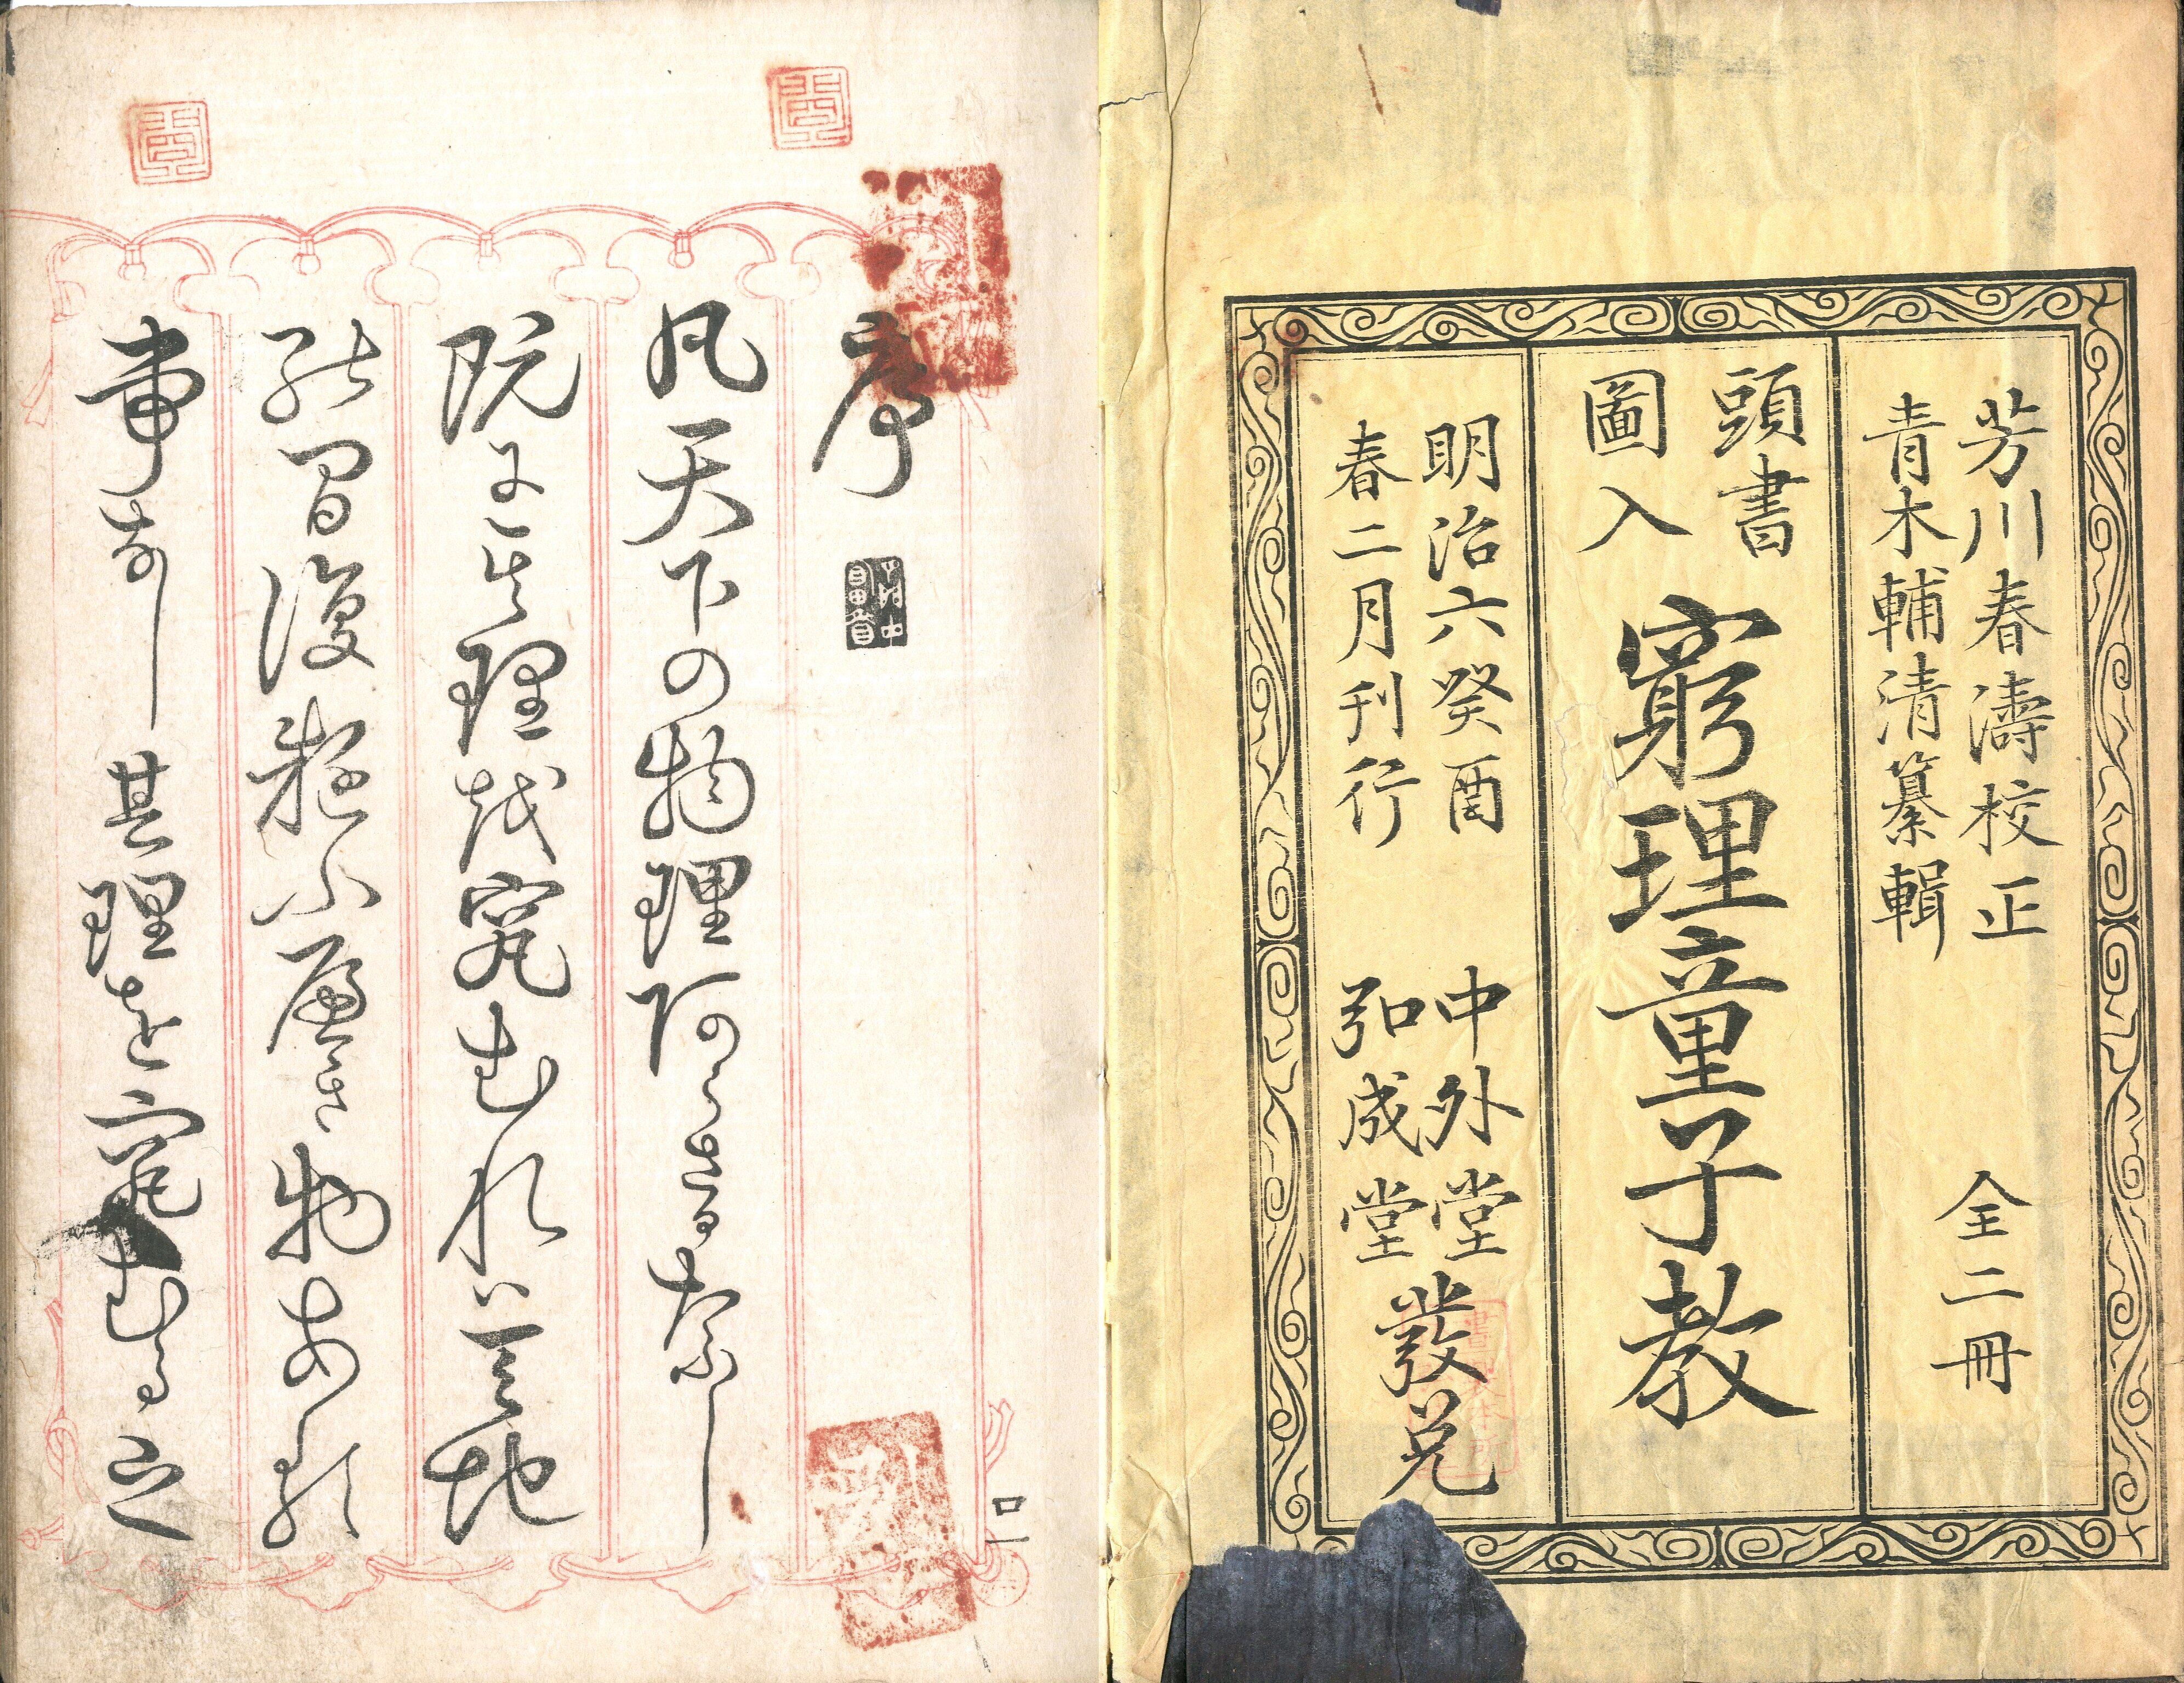 芳川春濤校正
青木輔清纂輯
全二冊
頭書
圖入
窮理童子教
明治六癸酉
春二月刊行
中外堂
弘成堂
發兌
序
凡天下の物理阿らさる奈し
既に其理越究むれハ天地
能間復疑ふ屬き物あ類
事なし其理を究むる之
口一